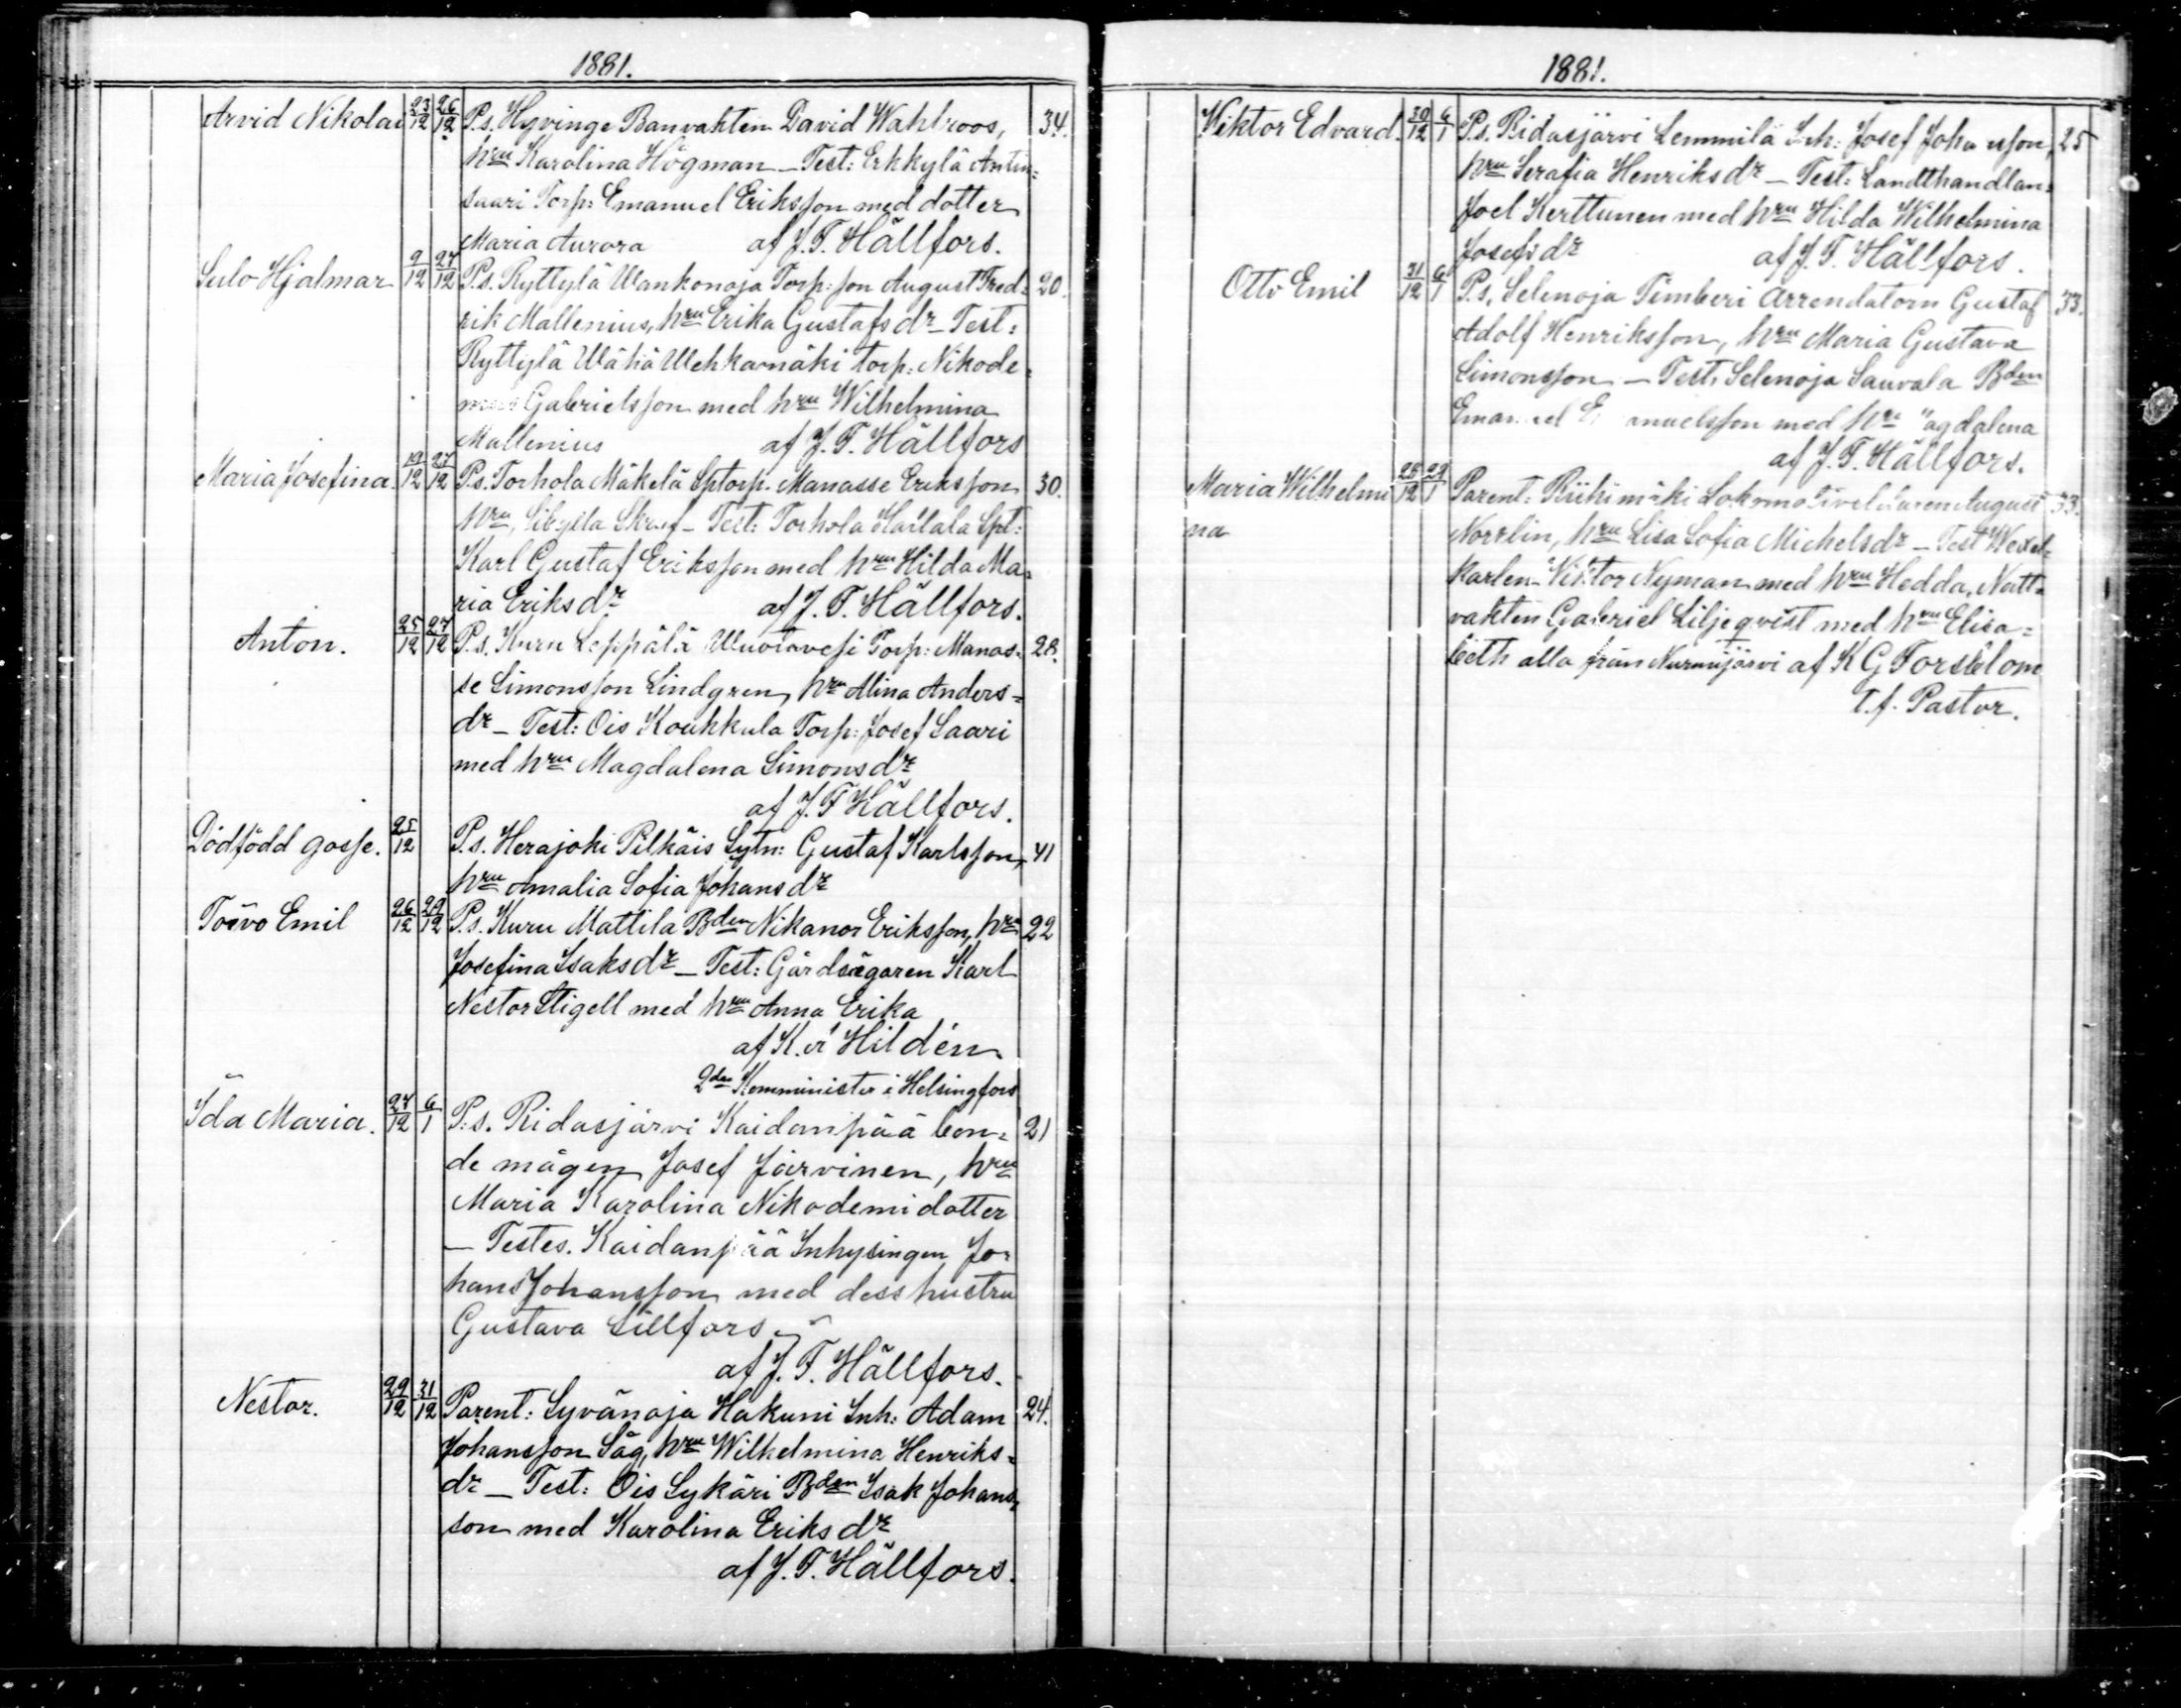 1881.
Arvid Nikolai 23/12 26/12 P.s. Hyvinge Banvakten David Wahlroos, 34.
hru Karolina Högman - Test: Erkkylä Antin=
saari Torp: Emanuel Eriksson med dotter
Maria Aurora af J. F. Hällfors.
Sulo Hjalmar 9/12 27/12 P.s. Ryttylä Wankonoja Torp: son August Fred= 20.
rik Mallenius, hru Erika Gustafsdr - Test:
Ryttylä Wähä Wehkamäki torp: Nikode=
mus Gabrielsson med hru Wilhelmina
Mallenius af J. F. Hällfors
Maria Josefina. 19/12 27/12 P.s. Torhola Mäkelä Sptorp. Manasse Eriksson 30.
hru, Sibylla - Test: Torhola Spt:
Karl Gustaf Eriksson med hru Hilda Ma=
ria Eriksdr af J. F. Hällfors.
Anton. 25/12 27/12 P.s. Kuru Leppälä Torp: Manas= 28.
se Simonsson Lindgren, hru Alina Anders=
dr - Test: Ois Koukkula Torp: Josef Saari
med hru Magdalena Simonsdr
af J. F Hällfors.
Dödfödd gosse. 25/12 P.s. Herajoki Pilkäis Sytn: Gustaf Karlsson, 41
hru Amalia Sofia Johansdr
Toivo Emil 26/12 29/12 P.s. Kuru Mattila Bden Nikanor Eriksson, hru 22
Josefina Isaksdr - Test: Gårdsägaren Karl
Nestor Stigell med hru Anna Erika
af K. A Hildén
2den Komminister i Helsingfors
Ida Maria. 27/12 6/1 P.s. Ridasjärvi Kaidanpää bon= 21
de mågen Josef Järvinen, hru
Maria Karolina Nikodemidotter
- Testes. Kaidanpää Inhysingen Jo=
hans Johansson med dess hustru
Gustava Lillfors
af J. F. Hällfors.
Nestor. 29/12 31/12 Parent: Syvänoja Hakuni Inh: Adam 24.
Johansson Säg, hru Wilhelmina Henriks=
dr - Test: Ois Sykäri Bden Isak Johans=
son med Karolina Eriksdr
af J. F. Hällfors.
1881.
Wiktor Edvard. 30/12 6/1 P.s. Ridasjärvi Lemmilä Inh: Josef Johansson, 25
hru Serafia Henriksdr - Test: Landthandlan=
Joel Kerttunen med hru Hilda Wilhelmina
Josefsdr af J. F. Hällfors.
Otto Emil 31/12 6/1 P.s. Selenoja Timberi Arrendatorn Gustaf 33.
Adolf Henriksson, hru Maria Gustava
Simonsson - Test: Selenoja Sauvala Bden
Emanuel Emanuelsson med hru Magdalena
af J. F. Hällfors.
Maria Wilhelmi 25/12 29/1 Parent: Riihimäki Lokomotiveldaren August 33.
na Norrlin, hru Lisa Sofia Michelsdr - Test Wexel=
karlen Viktor Nyman med hru Hedda, Natt=
vakten Gabriel Liljeqvist med hru Elisa=
beth alla från Nurmijärvi af K G Forsblom
t.f. Pastor.